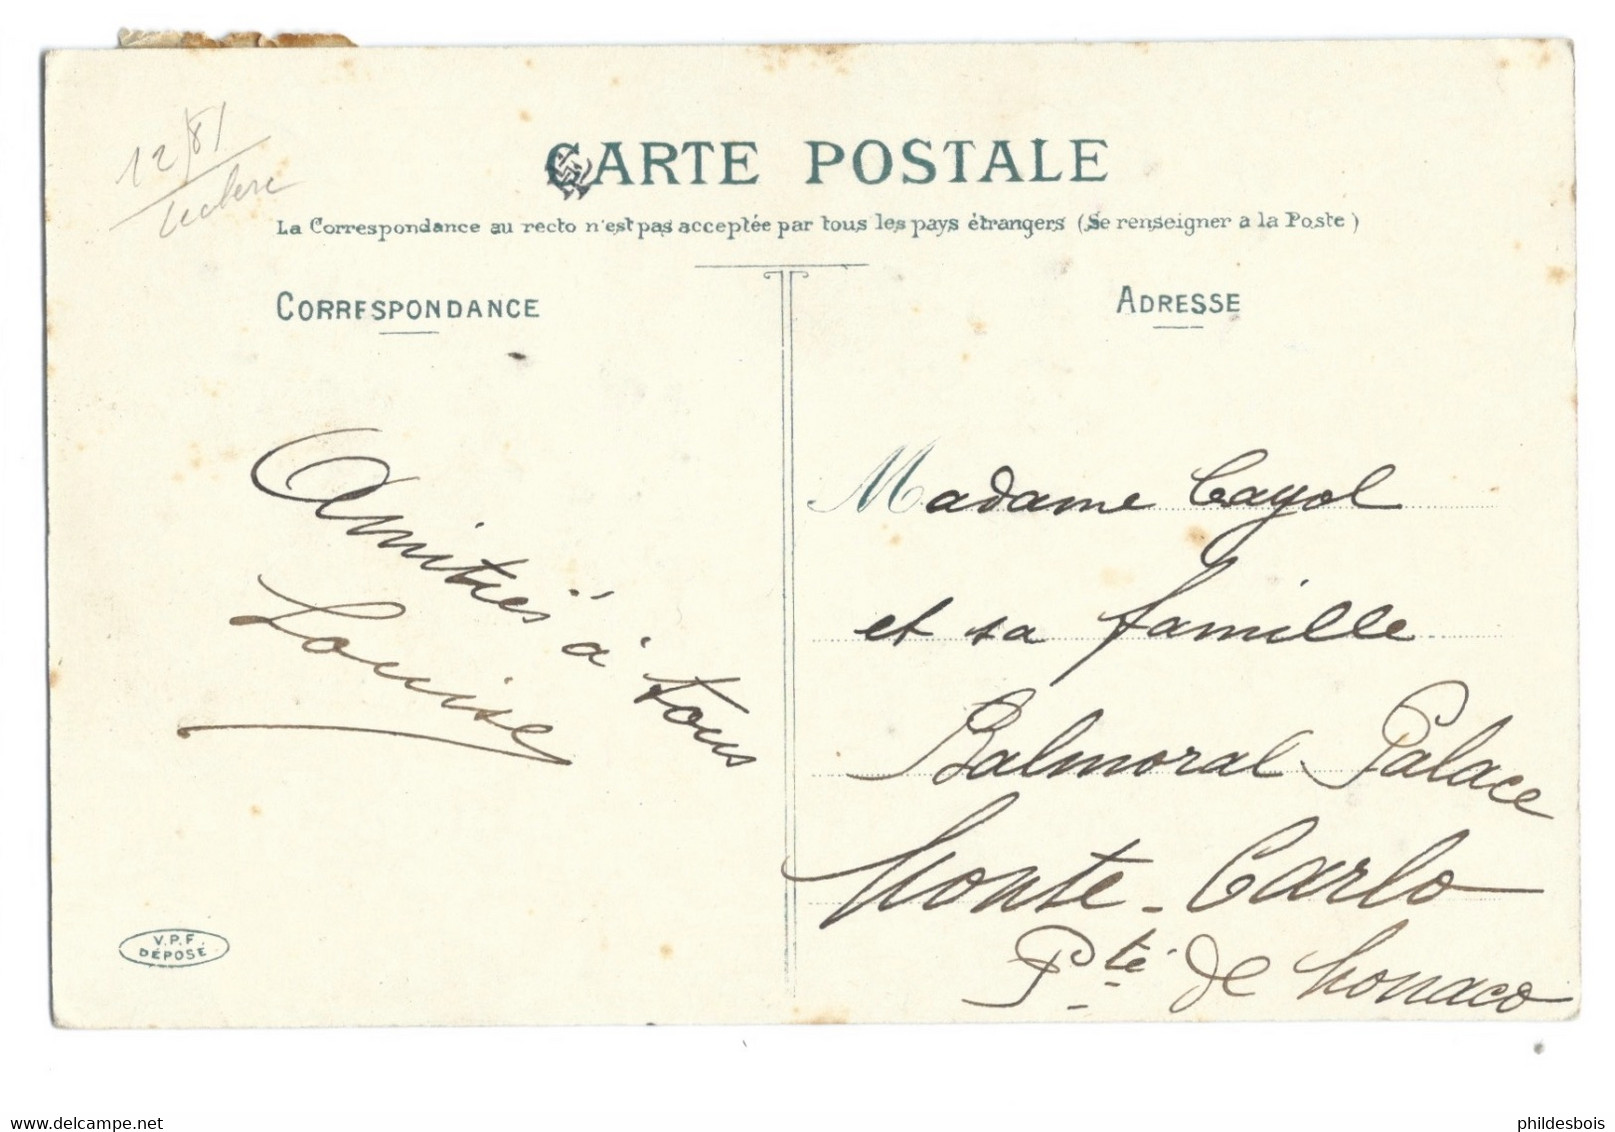 12/81
Leclerc
CARTE POSTALE
La Correspondance au recto n'est pas acceptée par tous les pays étrangers (Se renseigner a la Poste)
CORRESPONDANCE
ADRESSE
Amitiés à tous
Louise
Madame Cayol
et sa famille
Balmoral Palace
Monte-Carlo
Pté de Monaco
V.P.F.
DÉPOSÉ
delcampe.net
phildesbois